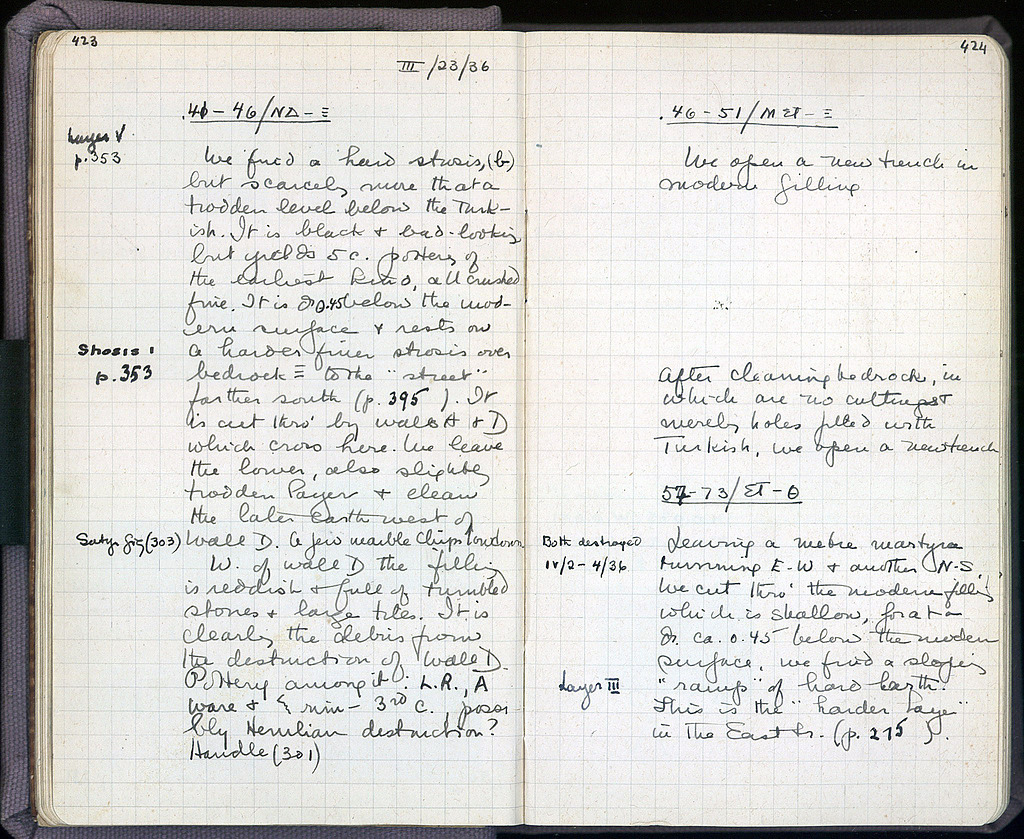 423
III/23/36
41-46/ΝΔ-Ξ
Layer V
p.353
We find a hard strosis, (b)
but scarcely more that a
trodden level below the Turk-
ish. It is black + bad-looking
but yields 5 c. pottery of
the earliest kind, all crushed
fine. It is 0.45 below the mod-
ern surface + rests on
Strosis 1
p.353
a harder finer strosis over
bedrock = to the "street"
farther south (p. 395 ). It
is cut thro' by walls A + D
which cross here. We leave
the lower, also slightly
trodden layer + clean
the later earth west of
Satyr fig (303)
Wall D. A few marble chips low down
W. of wall D the filling
is reddish + full of tumbled
stones + large tiles. It is
clearly the debris from
the destruction of Wall D.
Pottery among it: L.R., A
ware + rim - 3rd c. possi
bly Herulian destruction?
Handle (301)
424
46-51/ΜΣΤ-Ξ
We open a new trench in
modern filling
After cleaning bedrock, in
which are no cuttings
merely holes filled with
Turkish, we open a new trench
57-73/ΣΤ-Θ
Both destroyed
IV/2-4/36
Leaving a metre martyra
running E-W + another N-S,
we cut thro' the modern filling
which is shallow, for at
ca. 0.45 below the modern
surface, we find a sloping
Layer III
"ramp" of hard earth.
This is the "harder layer"
in the East tr. (p. 275 ).